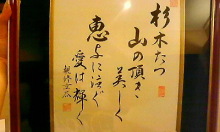 杉木たつ
山の頂き
美しく
恵よに泣ぐ
愛は輝く